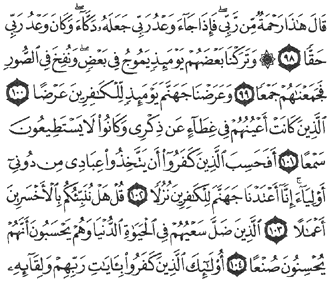 قَالَ هَٰذَا رَحْمَةٌ مِّن رَّبِّى ۖ فَإِذَا جَآءَ وَعْدُ رَبِّى جَعَلَهُۥ دَكَّآءَ ۖ وَكَانَ وَعْدُ رَبِّى
حَقًّا ٩٨ ۞ وَتَرَكْنَا بَعْضَهُمْ يَوْمَئِذٍ يَمُوجُ فِى بَعْضٍ ۖ وَنُفِخَ فِى ٱلصُّورِ
فَجَمَعْنَٰهُمْ جَمْعًا ٩٩ وَعَرَضْنَا جَهَنَّمَ يَوْمَئِذٍ لِّلْكَٰفِرِينَ عَرْضًا ١٠٠
ٱلَّذِينَ كَانَتْ أَعْيُنُهُمْ فِى غِطَآءٍ عَن ذِكْرِى وَكَانُوا۟ لَا يَسْتَطِيعُونَ
سَمْعًا ١٠١ أَفَحَسِبَ ٱلَّذِينَ كَفَرُوٓا۟ أَن يَتَّخِذُوا۟ عِبَادِى مِن دُونِىٓ
أَوْلِيَآءَ ۚ إِنَّآ أَعْتَدْنَا جَهَنَّمَ لِلْكَٰفِرِينَ نُزُلًا ١٠٢ قُلْ هَلْ نُنَبِّئُكُم بِٱلْأَخْسَرِينَ
أَعْمَٰلًا ١٠٣ ٱلَّذِينَ ضَلَّ سَعْيُهُمْ فِى ٱلْحَيَوٰةِ ٱلدُّنْيَا وَهُمْ يَحْسَبُونَ أَنَّهُمْ
يُحْسِنُونَ صُنْعًا ١٠٤ أُو۟لَٰٓئِكَ ٱلَّذِينَ كَفَرُوا۟ بِـَٔايَٰتِ رَبِّهِمْ وَلِقَآئِهِۦ